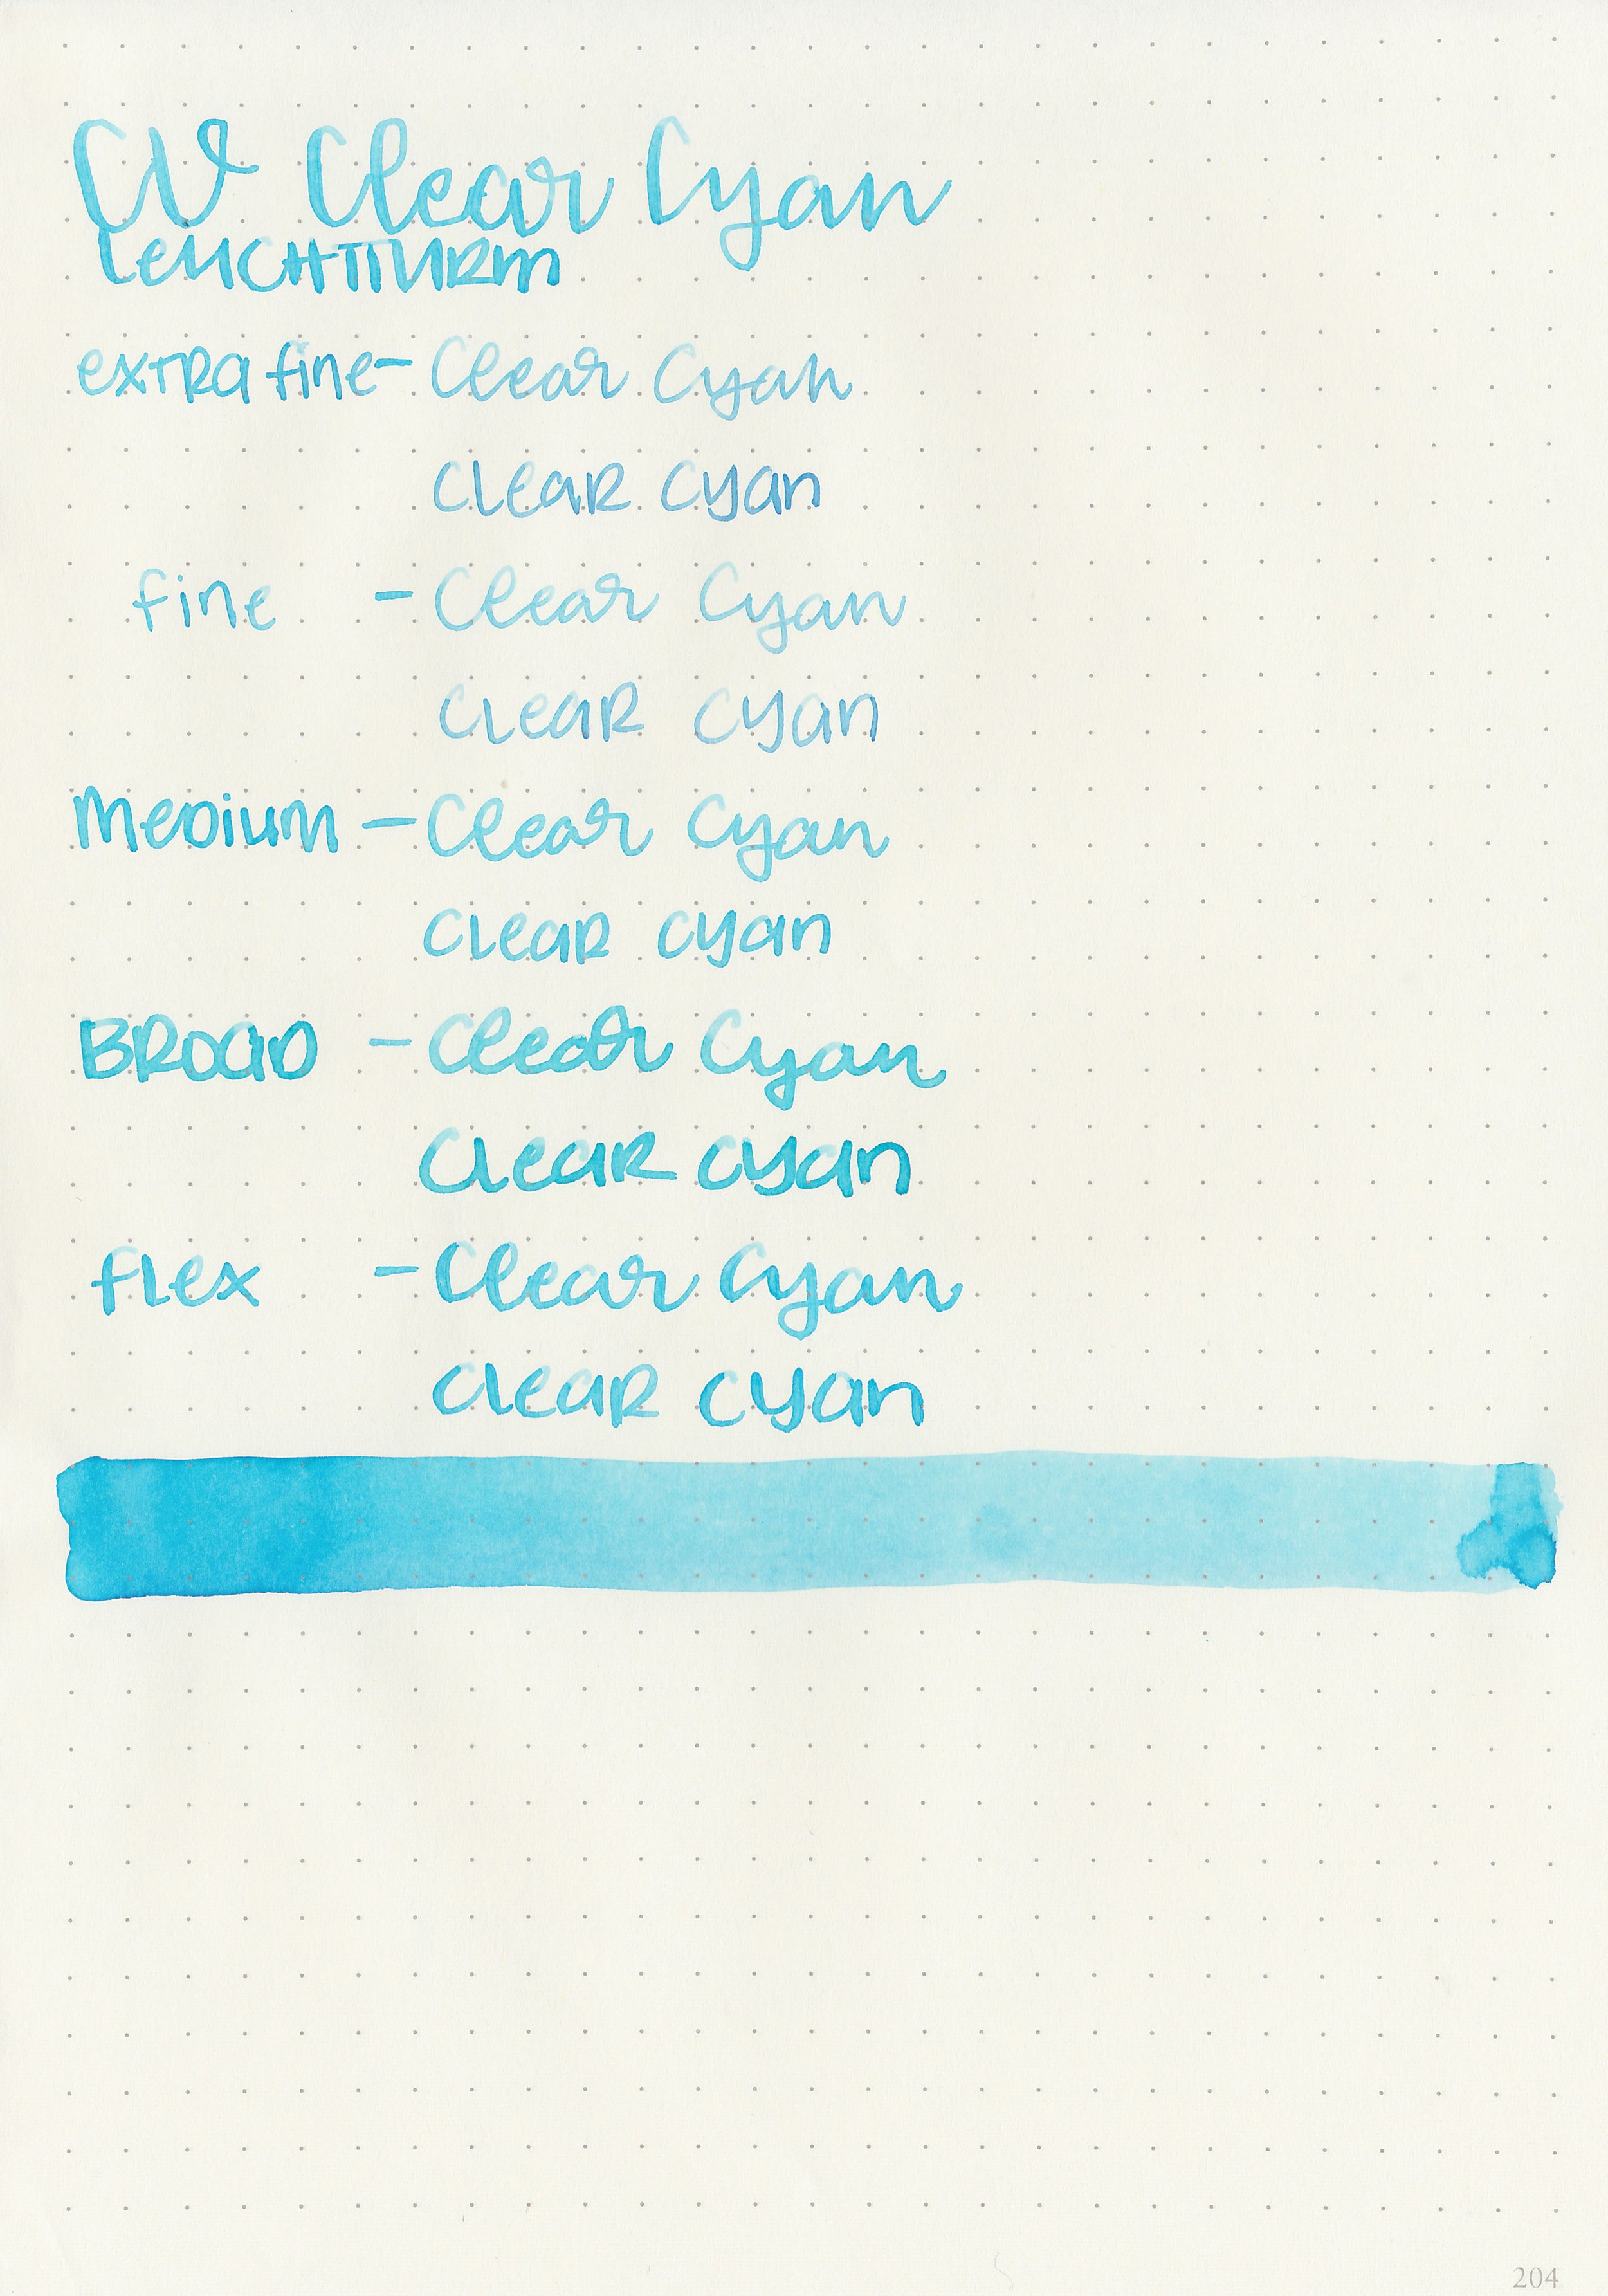 CV Clear Cyan
LEUCHTTURM
extra fine - Clear Cyan
Clear Cyan
fine - Clear Cyan
Clear Cyan
Medium - Clear Cyan
Clear Cyan
BROAD - Clear Cyan
Clear Cyan
flex - Clear Cyan
Clear Cyan
204